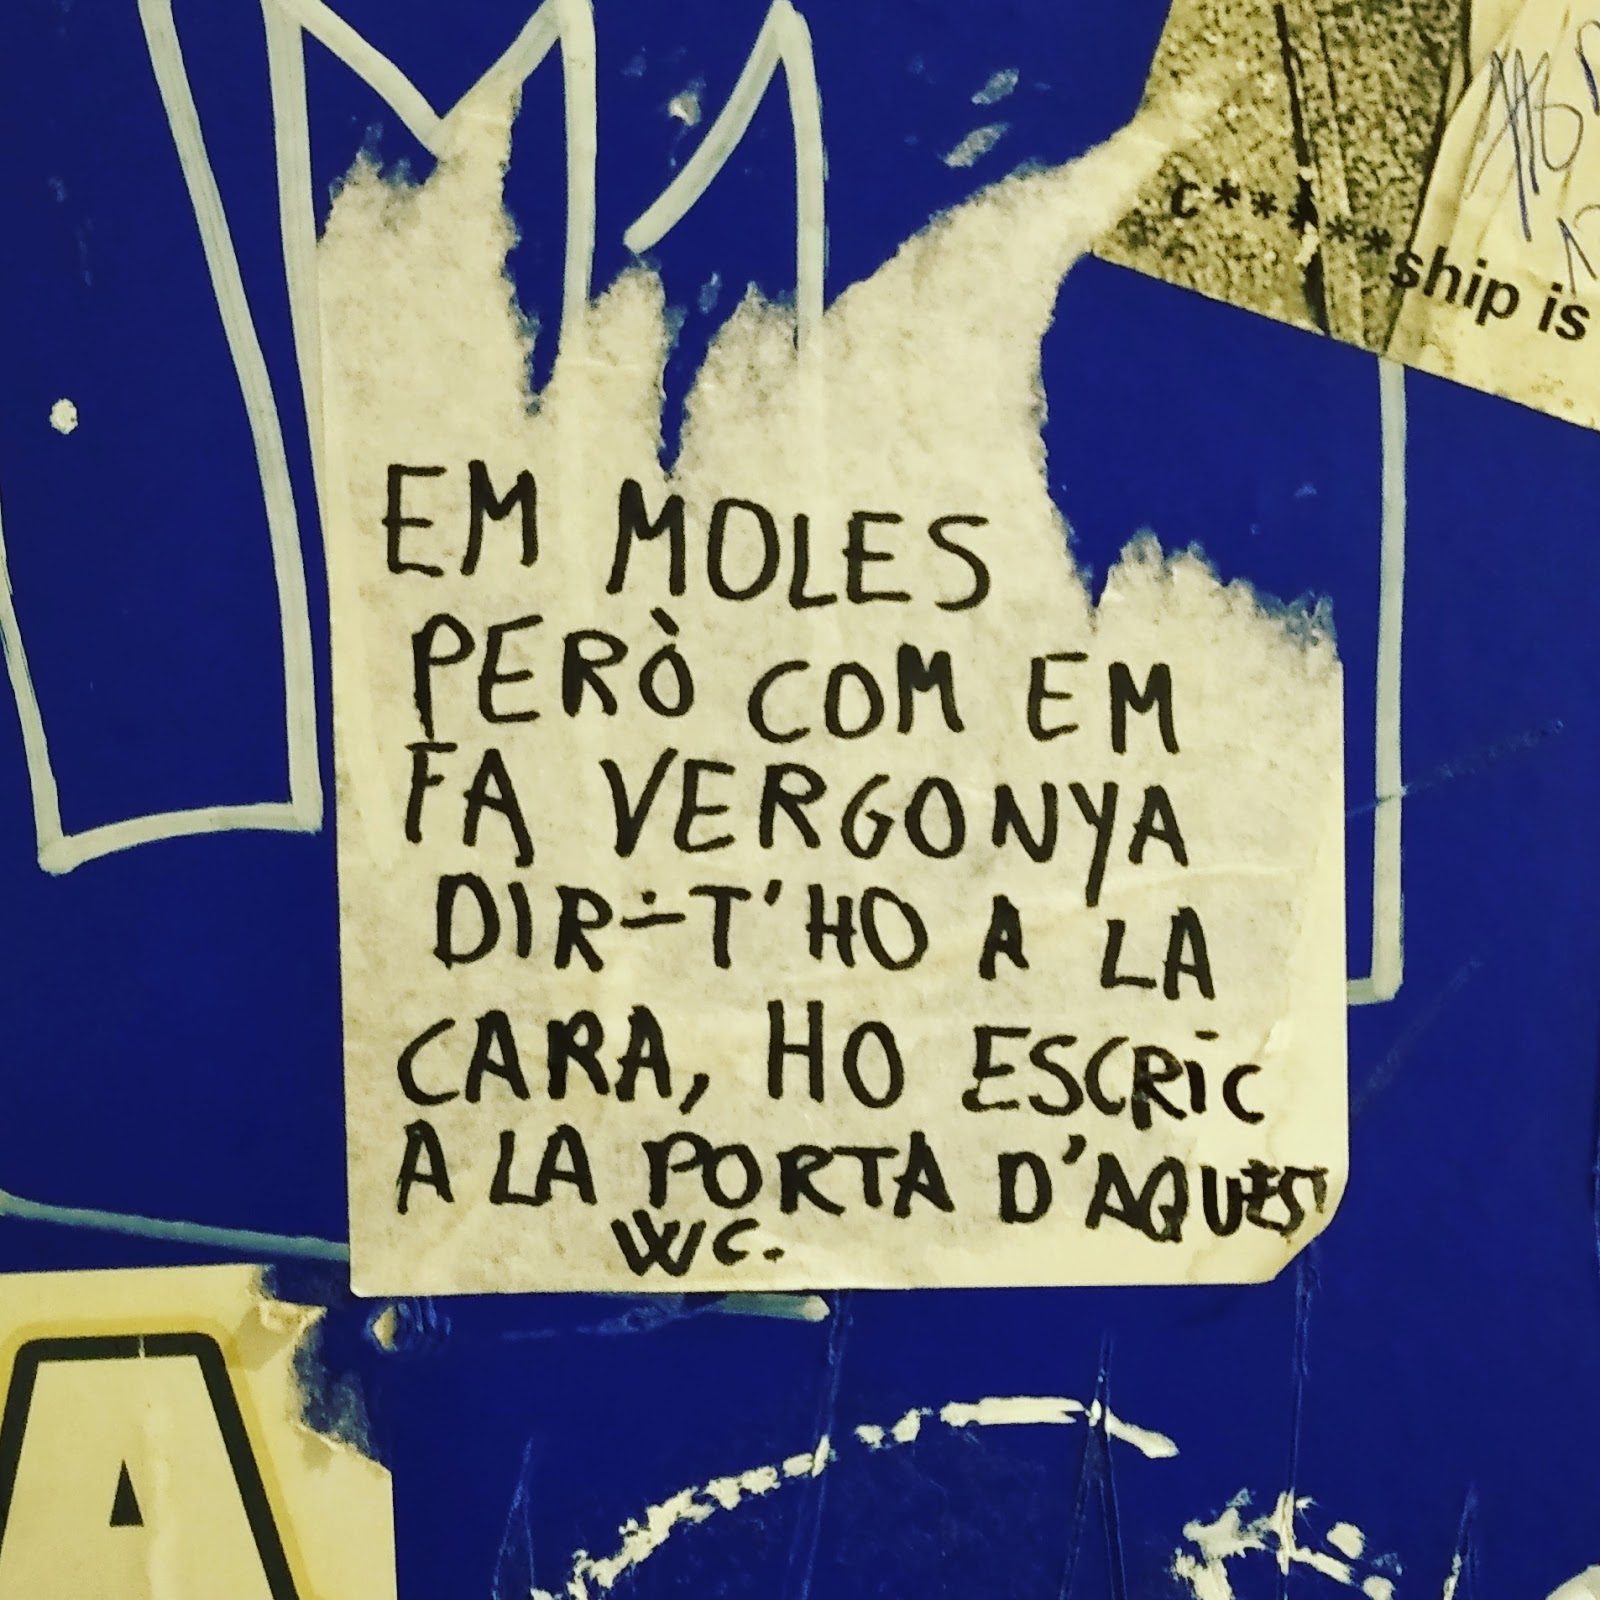 c*****ship is
EM MOLES
PERÒ COM EM
FA VERGONYA
DIR-T'HO A LA
CARA, HO ESCRIC
A LA PORTA D'AQUEST
WC.
A